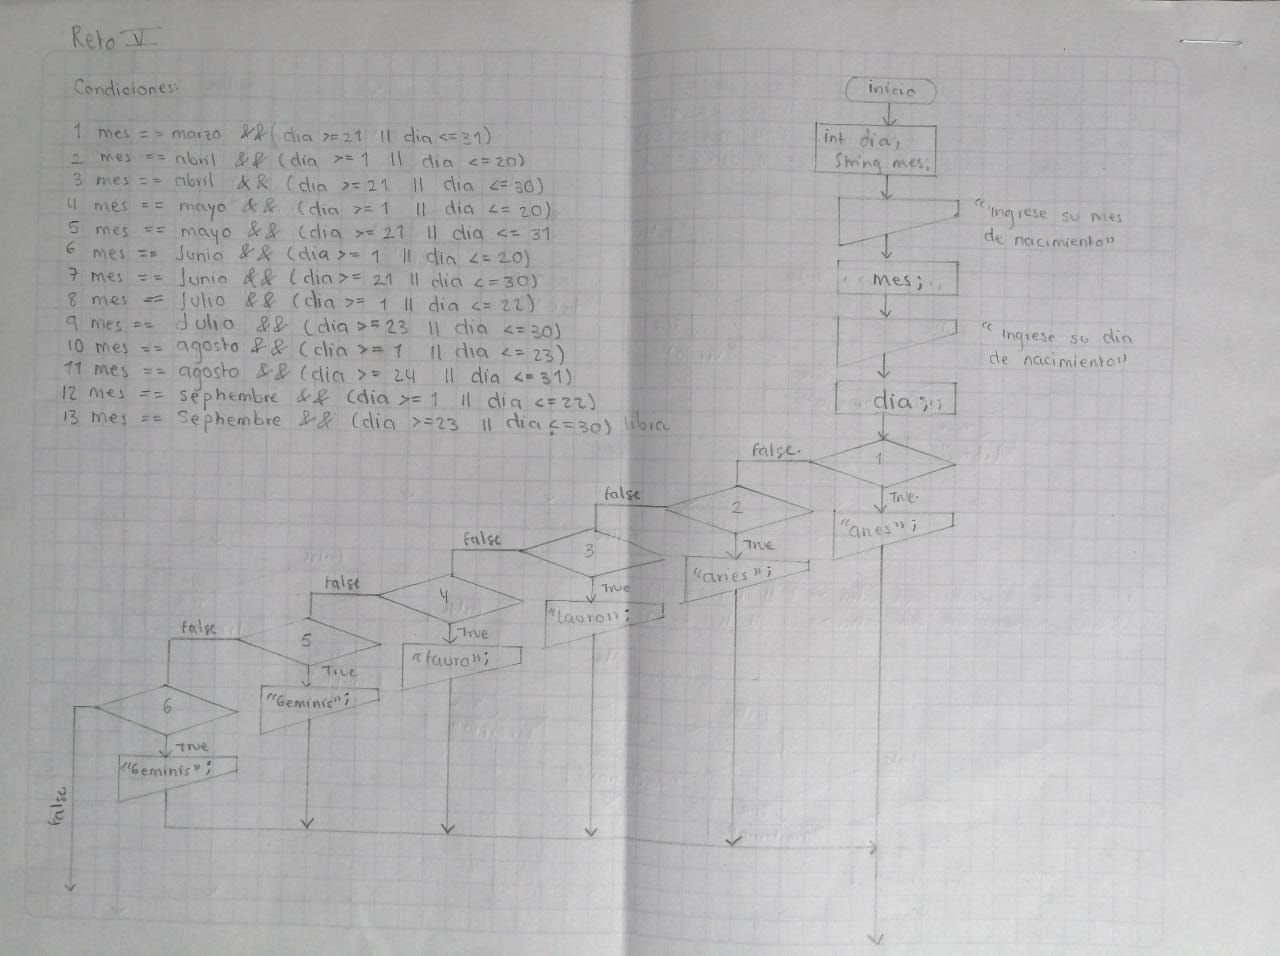 Reto V
Condiciones:
1 mes == marzo && (dia >=21 || dia <=31)
2 mes == abril && (dia >= 1 || dia <=20)
3 mes == abril && (dia >= 21 || dia <=30)
4 mes == mayo && (dia >= 1 || dia <= 20)
5 mes == mayo && (dia >= 21 || dia <= 31
6 mes == Junio && (dia >= 1 || dia <=20)
7 mes == Junio && (dia >= 21 || dia <=30)
8 mes == Julio && (dia >= 1 || dia <= 22)
9 mes == Julio && (dia >=23 || dia <=30)
10 mes == agosto && (dia >= 1 || dia <= 23)
11 mes == agosto && (dia >= 24 || dia <=31)
12 mes == septiembre && (dia >= 1 || dia <=22)
13 mes == Septiembre && (dia >=23 || dia <=30) libra
inicio
int dia;
String mes;
"Ingrese su mes
de nacimiento"
mes;
"Ingrese su dia
de nacimiento"
dia;
1
false
True
"aries";
2
false
True
"aries";
3
false
True
"tauro";
4
false
True
"tauro";
5
false
True
"Geminis";
6
false
True
"Geminis";